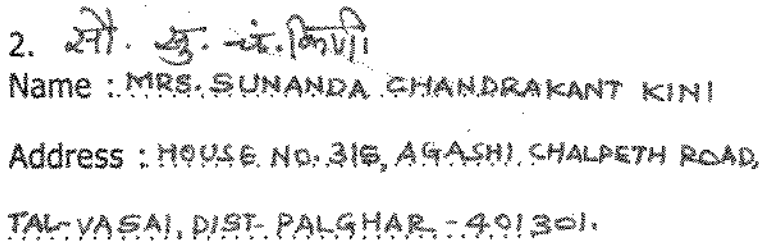 2. सौ. सु. चं. किणी
Name : MRS. SUNANDA CHANDRAKANT KINI
Address : HOUSE NO. 316, AGASHI CHALPETH ROAD,
TAL-VASAI, DIST- PALGHAR - 401301.